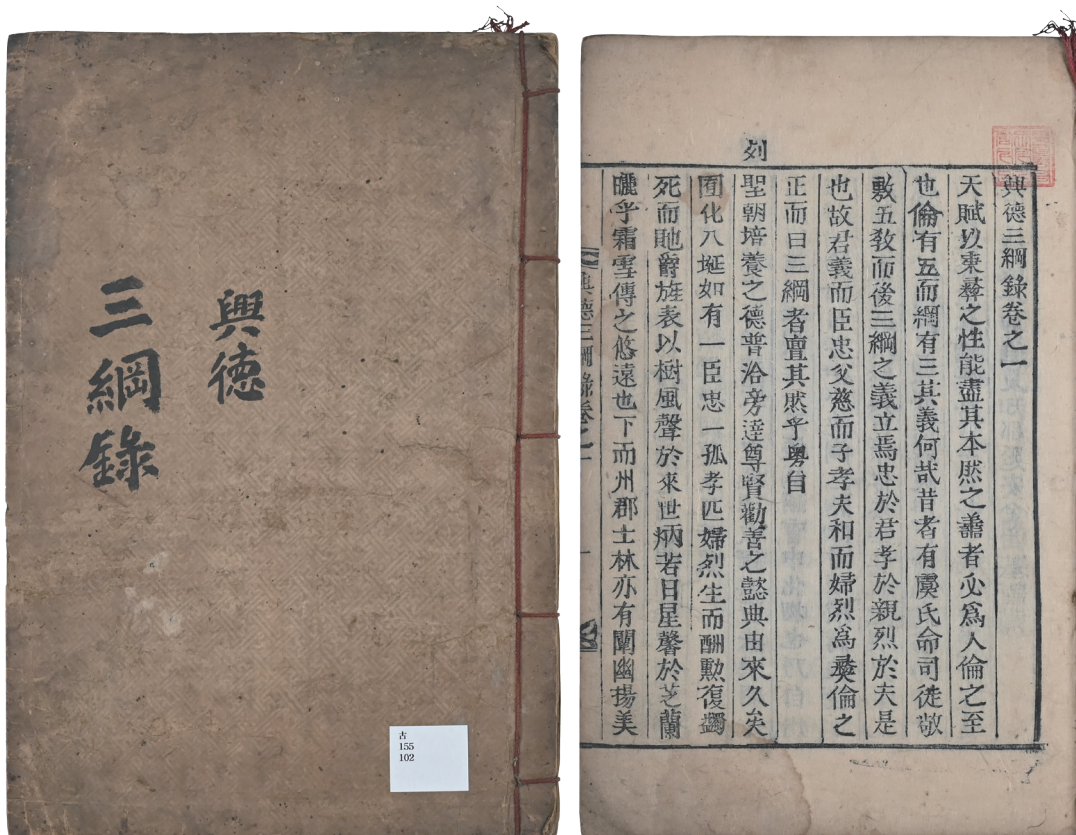 興德
三綱錄
古
155
102
興德三綱錄卷之一
天賦以秉彛之性能盡其本然之善者必爲人倫之至
也倫有五而綱有三其義何哉昔者有虞氏命司徒敬
敷五教而後三綱之義立焉忠於君孝於親烈於夫是
也故君義而臣忠父慈而子孝夫和而婦烈爲彛倫之
正而曰三綱者亶其然乎粤自
列
聖朝培養之德普洽旁達尊賢勸善之懿典由來久矣
囿化八埏如有一臣忠一孤孝匹婦烈生而酬勳復蠲
死而貤爵旌表以樹風聲於來世炳若日星馨於芝蘭
曬乎霜雪傳之悠遠也下而州郡士林亦有闡幽揚美
興德三綱錄卷之一
一